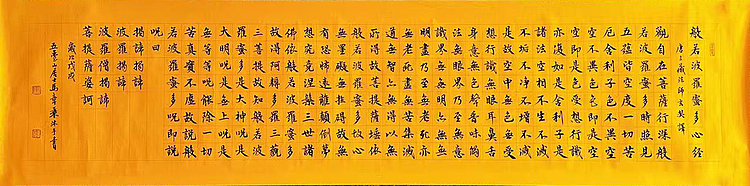 般若波羅蜜多心經
唐三藏法師玄奘譯
觀自在菩薩行深般
若波羅蜜多時照見
五蘊皆空度一切苦
厄舍利子色不異空
空不異色色即是空
空即是色受想行識
亦復如是舍利子是
諸法空相不生不滅
不垢不淨不增不減
是故空中無色無受
想行識無眼耳鼻舌
身意無色聲香味觸
法無眼界乃至無意
識界無無明亦無無
明盡乃至無老死亦
無老死盡無苦集滅
道無智亦無得以無
所得故菩提薩埵依
般若波羅蜜多故心
無罣礙無罣礙故無
有恐怖遠離顛倒夢
想究竟涅槃三世諸
佛依般若波羅蜜多
故得阿耨多羅三藐
三菩提故知般若波
羅蜜多是大神呪是
大明呪是無上呪是
無等等呪能除一切
苦真實不虛故說般
若波羅蜜多呪即說
呪曰
揭諦揭諦
波羅揭諦
波羅僧揭諦
菩提薩婆訶
歲次戊戌
沐手書